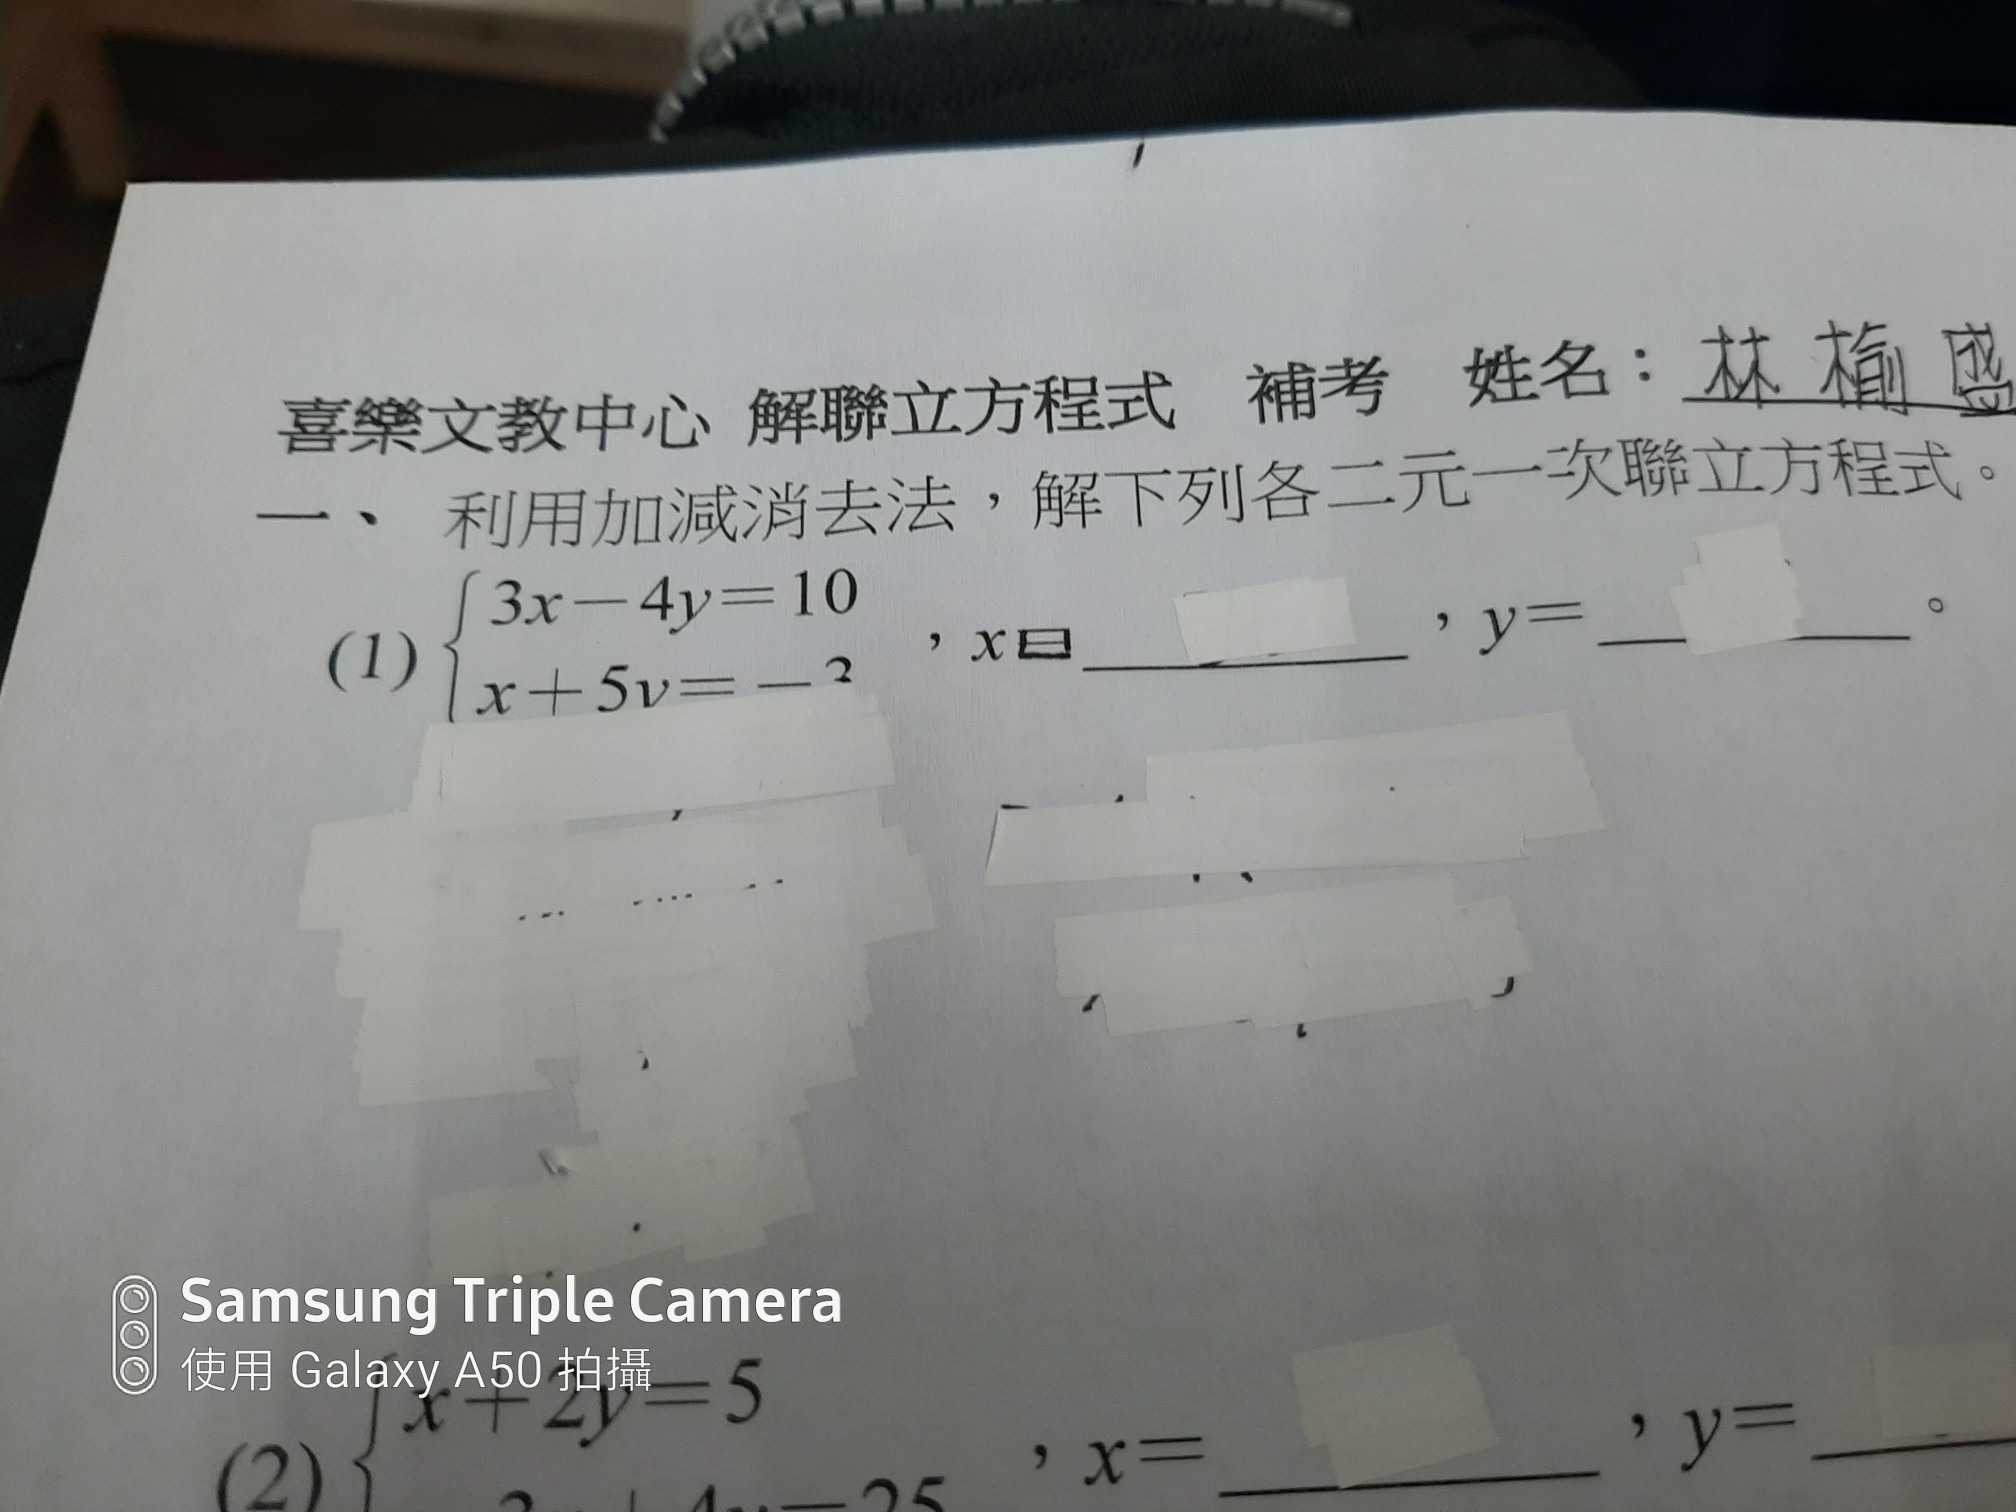 喜樂文教中心 解聯立方程式 補考 姓名：林 盛
一、 利用加減消去法，解下列各二元一次聯立方程式。
(1) 3x－4y＝10
x＋5y＝－3
，x＝ ，y＝ 。
Samsung Triple Camera
使用 Galaxy A50 拍攝
(2) x＋2y＝5
3x＋4y＝25
，x＝ ，y＝